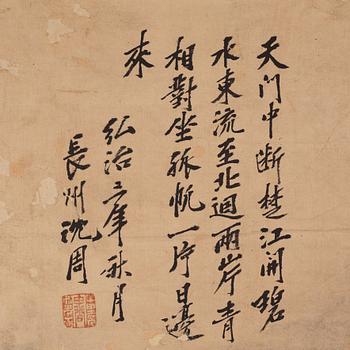 天门中断楚江開碧
水東流至北迴兩岸青
相對坐孤帆一片日邊
來
弘治三年秋月
長州沈周